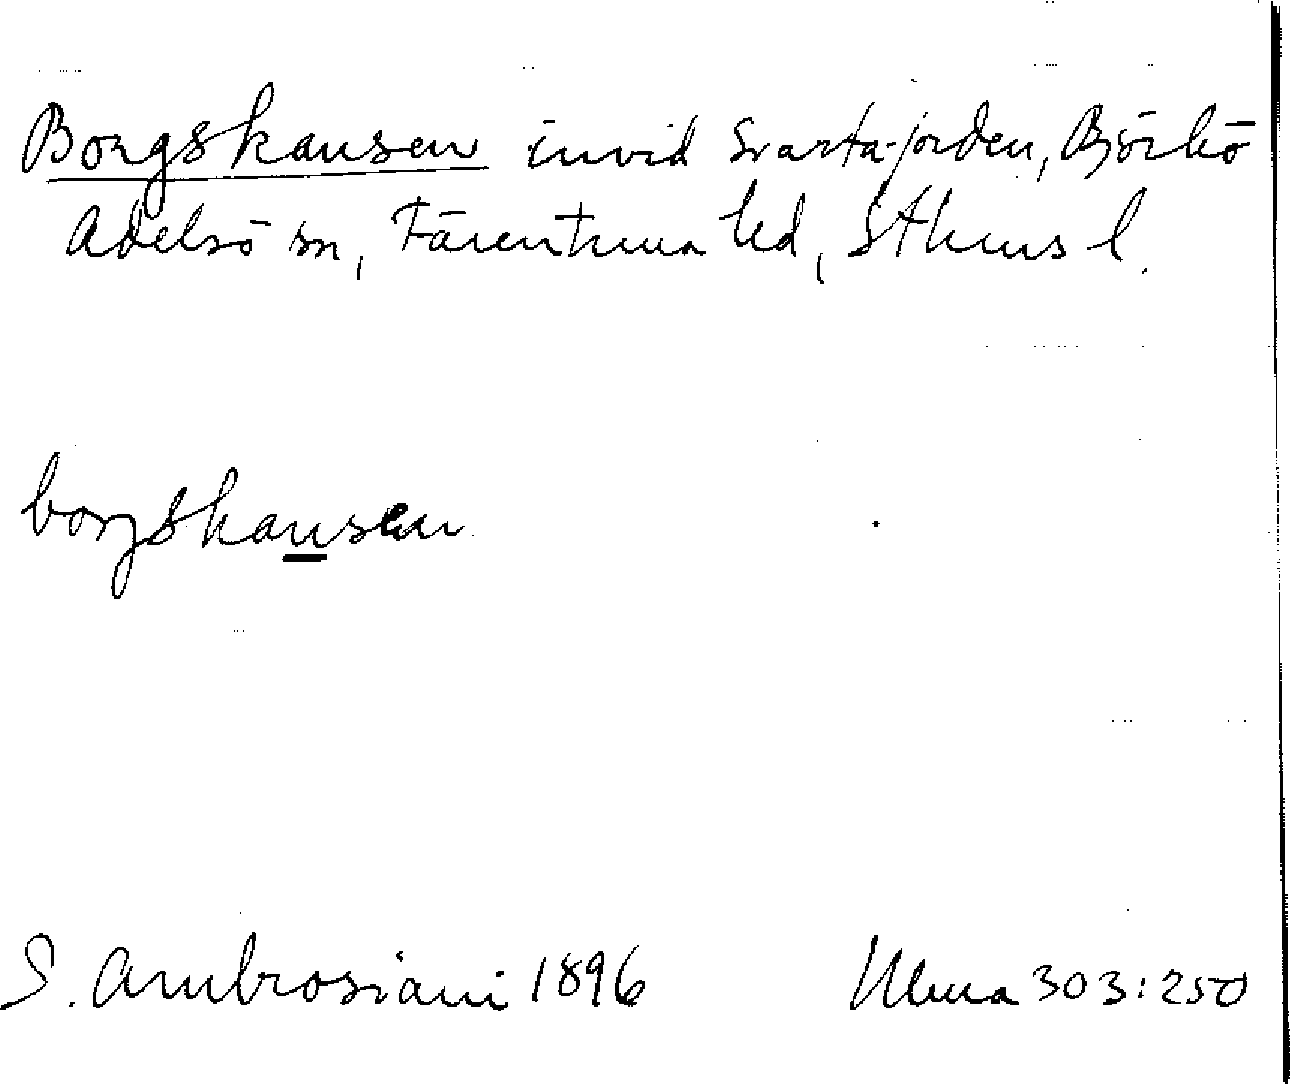 Borgskansen invid Svarta-jorden, Björkö
Adelsö sn, Färentuna hd, Sthms l.
borgskansen
S. Ambrosiani 1896 Ulma 303:250